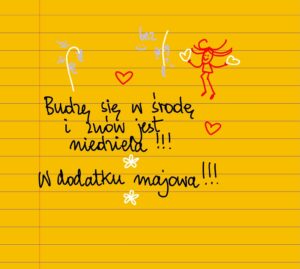 bez
Budzę się w środę
i znów jest
niedziela!!!
W dodatku majowa!!!